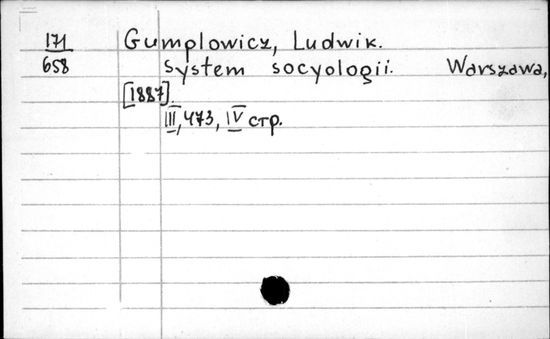 171 Gumplowicz, Ludwik.
658 System socyologii. Warszawa,
[1887].
III, 473, IV стр.